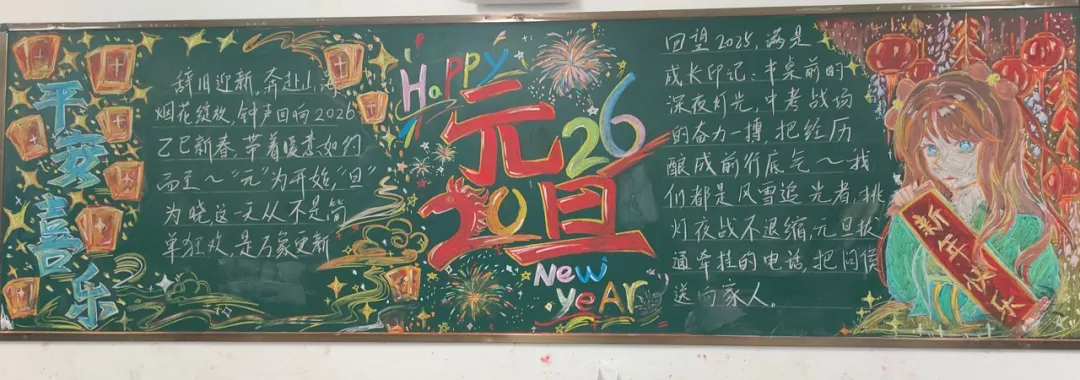 平安喜乐
辞旧迎新,奔赴山海
烟花绽放,钟声回响2026
乙巳新春,带着暖意如约
而至~"元"为开始,"旦"
为晓这一天从不是简
单狂欢,是万象更新
Happy
元旦
2026
New
yeAr
回望2025,满是
成长印记:书桌前的
深夜灯光,中考战场
的奋力一搏,把经历
酿成前行底气~我
们都是风雪追光者,挑
灯夜战不退缩,元旦拨
通牵挂的电话,把问候
送向家人。
新年快乐